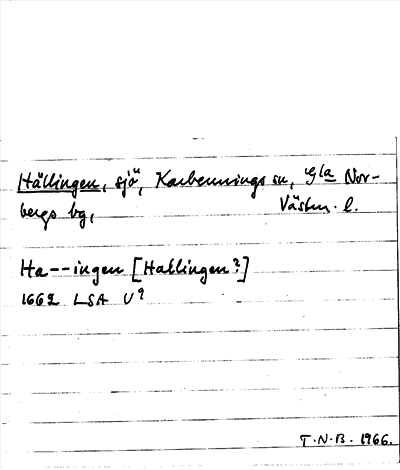 Hällingen, sjö, Karbennings sn, Gla Nor-
bergs bg, Västm. l.
Ha--ingen [Hallingen?]
1662 LSA U?
T.N.B. 1966.